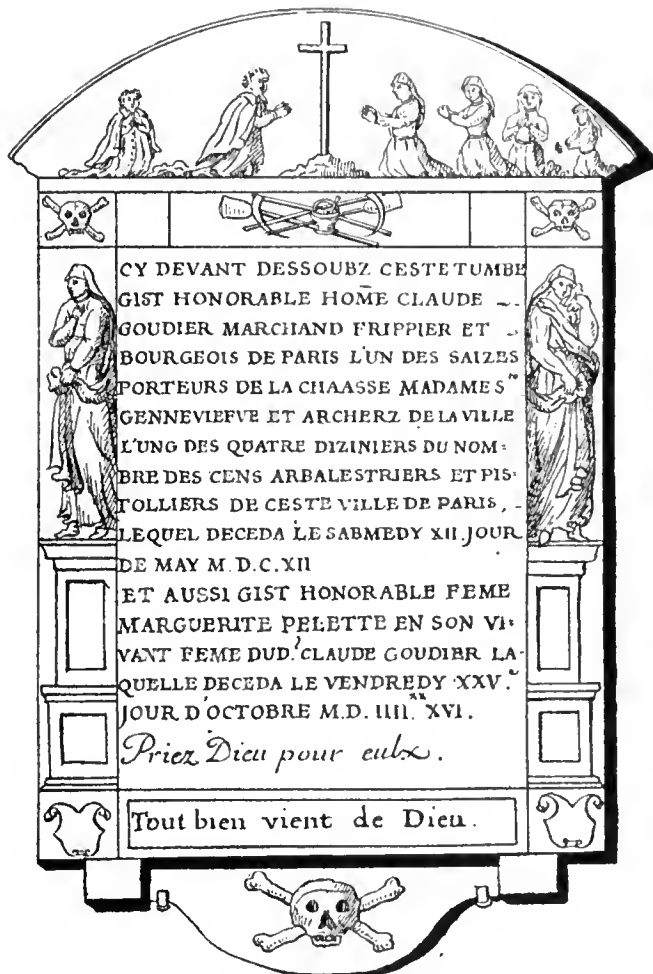 CY DEVANT DESSOUBZ CESTE TUMBE
GIST HONORABLE HOM̄E CLAUDE
GOUDIER MARCHAND FRIPPIER ET
BOURGEOIS DE PARIS L'UN DES SAIZES
PORTEURS DE LA CHAASSE MADAME Sᵗᵉ
GENNEVIEFVE ET ARCHERZ DE LA VILLE
L'UNG DES QUATRE DIZINIERS DU NOM:
BRE DES CENS ARBALESTRIERS ET PIS:
TOLLIERS DE CESTE VILLE DE PARIS,
LEQUEL DECEDA LE SABMEDY XII. JOUR
DE MAY M.D.C.XII
ET AUSSI GIST HONORABLE FEME
MARGUERITE PELETTE EN SON VI:
VANT FEME DUD.ᵗ CLAUDE GOUDIER LA-
QUELLE DECEDA LE VENDREDY XXV.ᵉ
JOUR D'OCTOBRE M.D.IIII.ˣˣ XVI.
Priez Dieu pour eulx.
Tout bien vient de Dieu.